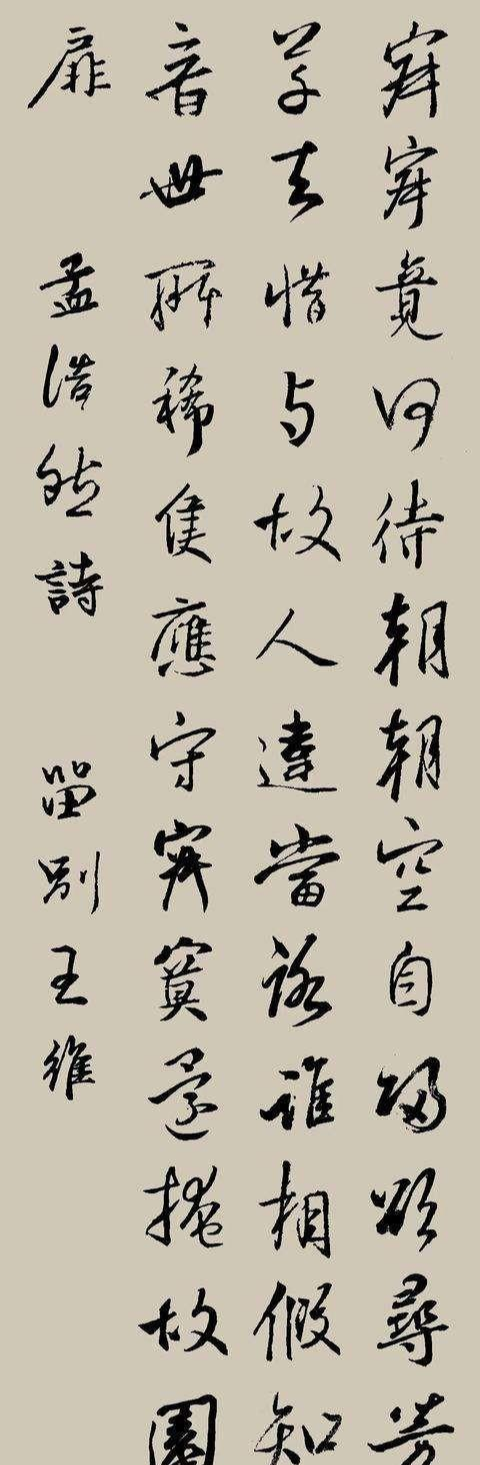 寂寂竟何待朝朝空自歸欲尋芳
草去惜與故人違當路誰相假知
音世所稀隻應守寂寞還掩故園
扉 孟浩然詩 留別王維